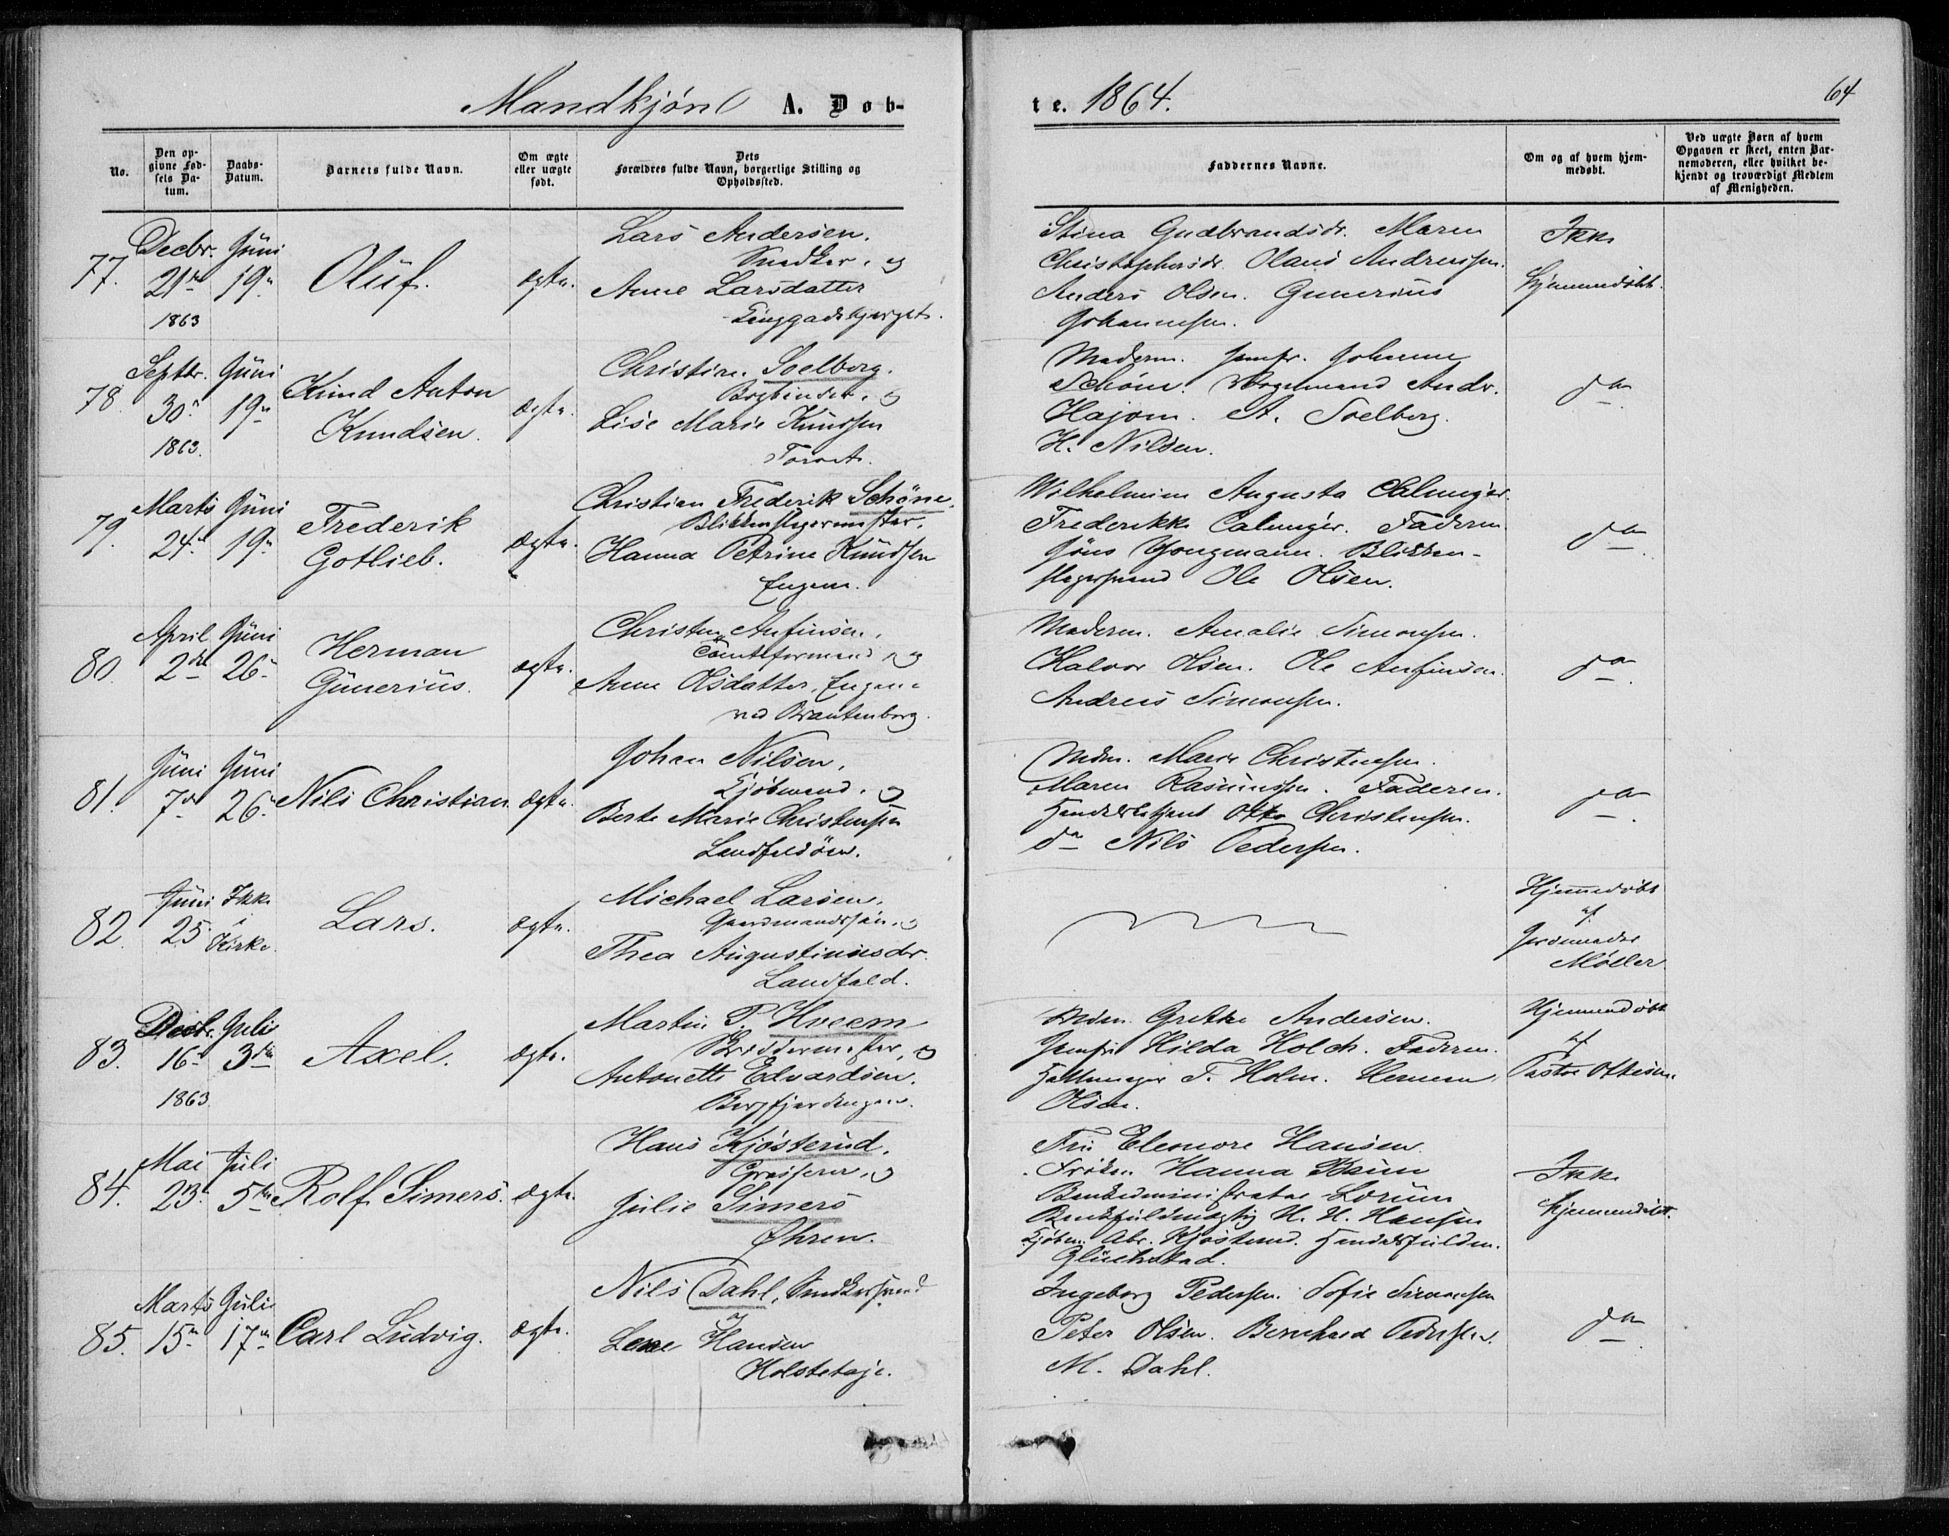 Mandkjøn A. Døb-
te. 1864.
64
No.
Den op-
givne Fød-
sels Da-
tum.
Daabs-
Datum.
Barnets fulde Navn.
Om ægte
eller uægte
født.
Dets
Forældres fulde Navn, borgerlige Stilling og
Opholdssted.
Faddernes Navne.
Om og af hvem hjem-
medøbt.
Ved uægte Barn af hvem
Opgaven er skeet, enten Bar-
nemoderen, eller hvilket be-
kjendt og troværdigt Medlem
af Menigheden.
77.
Decbr.
21de
1863
Juni
19de
Oluf.
ægte.
Lars Andersen.
Snedker, og
Anne Larsdatter
Stina Gudbrandsdr. Maren
Christophersdr. Olaus Andreassen.
Anders Olsen. Gunerius
Johannessen.
Ikke
hjemmedøbt.
78.
Septbr.
30te
1863.
Juni
19de
Knud Anton
Knudsen.
ægte.
Christian Soelberg.
Bogbinder, og
Lise Marie Knudsen
Torvet.
Moderen. Jomfr. Johanne
Schöne. Andr.
Hajom. A. Soelberg.
H. Nilsen.
do
79.
Marts
24de
Juni
19de
Frederik
Gotlieb.
ægte.
Christian Frederik Schöne.
Blikkenslagermester.
Hanna Petrine Knudsen
Engene.
Wilhelmine Augusta Calmejer.
Frederikke Calmejer. Faderen
Jöns Blikken-
slagersvend Ole Olsen.
do
80.
April
2den
Juni
26de
Herman
Gunerius.
ægte.
Christen Anfinsen.
Tomteformand og
Anne Olsdatter. Engene
ved Brantenborg.
Moderen. Amalie Simonsen.
Halvor Olsen. Ole Anfinsen.
Andreas Simonsen.
do
81.
Juni
7de
Juni
26de
Nils Christian
ægte.
Johan Nilsen.
Kjøbmand, og
Berte Marie Christensen
Landfaldøen.
Mdm. Marie Christensen.
Maren Rasmussen. Faderen.
Handelsbetjent Otto Christensen.
do Nils Pedersen.
do
82.
Juni
25
Ikke
i
Kirke.
Lars.
ægte.
Michael Larsen.
Gaardmandssøn, og
Thea Augustinusdr.
Landfald.
Hjemmedøbt
af
Jordmoder
Møller.
83.
Decbr.
16de
1863
Juli
3die
Axel.
ægte.
Martin P. Hveem
og
Antonette Edvardsen.
Mdm. Grethe Andersen.
Jomfru Hilda Holch. Faderen.
T. Holm. Herman
Olsen.
Hjemmedøbt
af
Pastor Ottesen.
84.
Mai
23de
Juli
5te
Rolf Simers.
ægte.
Hans Kjøsterud.
Grosserer, og
Julie Simers
Øhren.
Fru Eleonore Hansen
Frøken Hanna Bruun
Bankadministrator Lorum
Bankfuldmægtig H. H. Hansen
Kjøbm. Abr. Kjøsterud. Handelsfuldm.
Glückstad.
Ikke
hjemmedøbt.
85.
Marts
15de
Juli
17de
Carl Ludvig.
ægte.
Nils Dahl, Snedkersvend
og
Lene Hansen
Ingeborg Pedersen. Sofie Simonsen
Peter Olsen. Bernhard Pedersen.
M. Dahl.
do